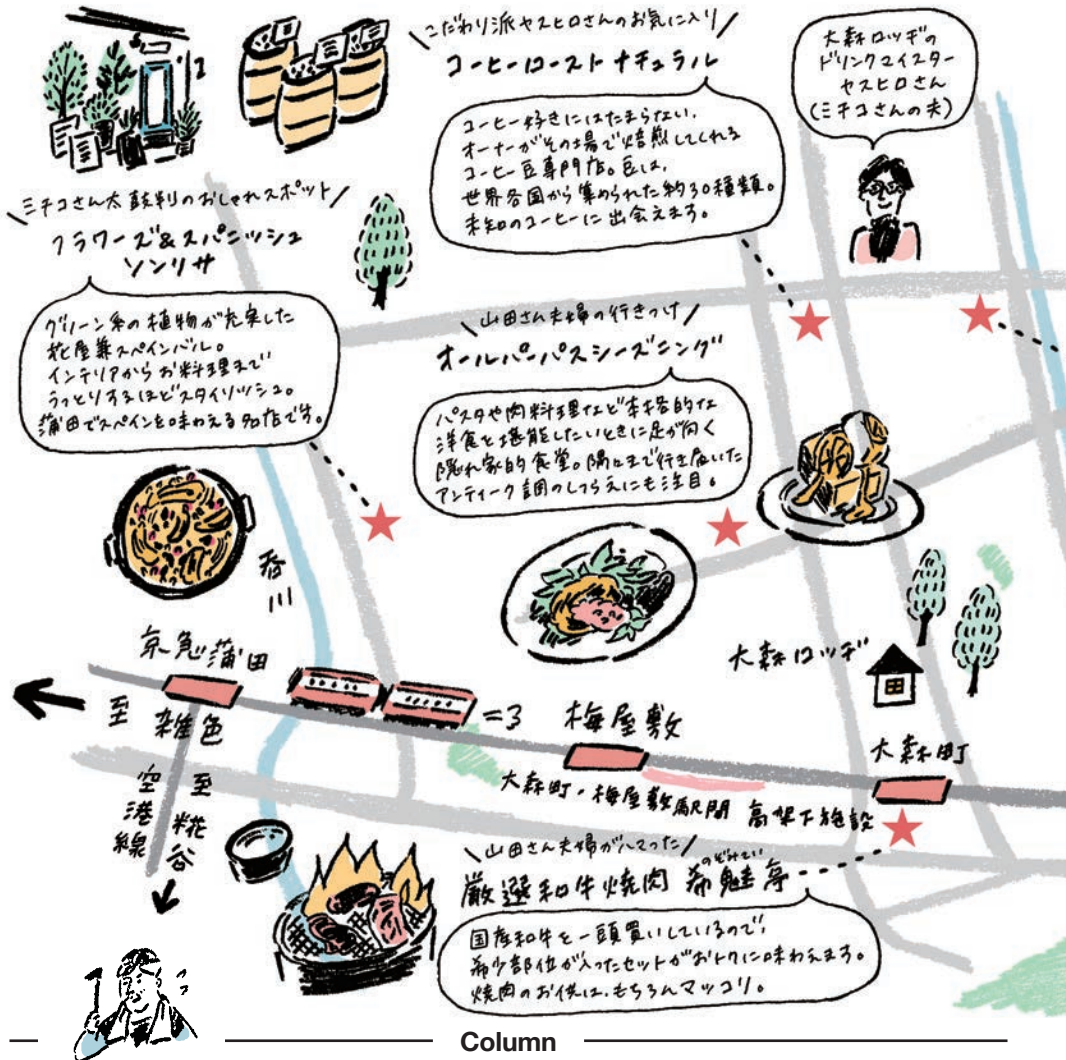 こだわり派ヤスヒロさんのお気に入り
コーヒーロースト ナチュラル
コーヒー好きにはたまらない、
オーナーがその場で焙煎してくれる
コーヒー豆専門店。豆は、
世界各国から集められた約30種類。
未知のコーヒーに出会えます。
大森ロッヂの
ドリンクマイスター
ヤスヒロさん
(ミチコさんの夫)
ミチコさん太鼓判のおしゃれスポット
フラワーズ&スパニッシュ
ソンリサ
グリーン系の植物が充実した
花屋兼スペインバル。
インテリアからお料理まで
うっとりするほどスタイリッシュ。
蒲田でスペインを味わえる名店です。
山田さん夫婦の行きつけ
オールパーパスシーズニング
パスタや肉料理など本格的な
洋食を堪能したいときに足が向く
隠れ家的食堂。隅々まで行き届いた
アンティーク調のしつらえにも注目。
呑川
京急蒲田
至雑色
空港線
至糀谷
=3
梅屋敷
大森ロッヂ
大森町
大森町・梅屋敷駅間 高架下施設
山田さん夫婦がハマった
のぞみてい
厳選和牛焼肉 希魁亭
国産和牛を一頭買いしているので、
希少部位が入ったセットがおトクに味わえます。
焼肉のお供は、もちろんマッコリ。
Column